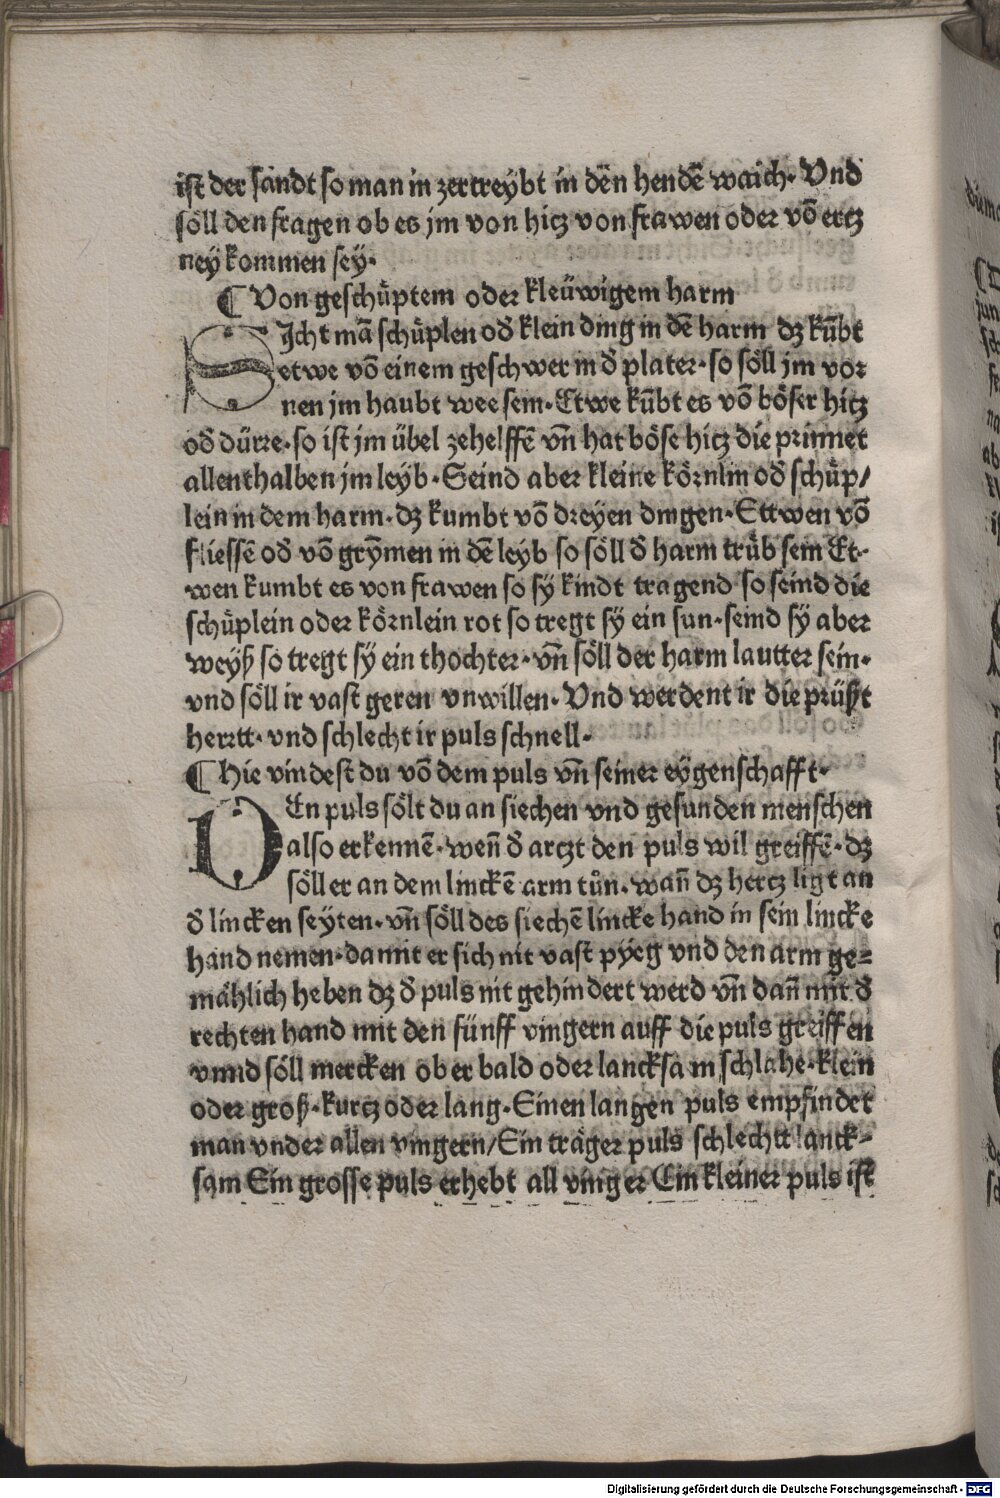 ist der sandt so man in zertreÿbt in dẽn hendẽ waich. Vnd
söll den fragen ob es jm von hitz von frawen oder võ ertz
neÿ kommen seÿ.
¶ Von geschüptem oder kleüwigem harm
SJcht mã schüplen oď klein ding in dẽ harm dz kũbt
etwe võ einem geschwer in ď plater. so söll jm vor
nen jm haubt wee sein. Etwe kũbt es võ böser hitz
oď dürre. so ist jm übel zehelffẽ vñ hat böse hitz die prinnet
allenthalben jm leÿb. Seind aber kleine körnlin oď schüp/
lein in dem harm. dz kumbt võ dreÿen dingen. Ettwen võ
fliessẽ oď võ grÿ̃men in dẽ leÿb so söll ď harm trüb sein Et-
wen kumbt es von frawen so sÿ kindt tragend so seind die
schüplein oder körnlein rot so tregt sÿ ein sun. seind sÿ aber
weÿß so tregt sÿ ein thochter. vñ söll der harm lautter sein.
vnd söll ir vast geren vnwillen. Vnd werdent ir die prüßt
herrtt. vnd schlecht ir puls schnell.
¶ Hie vindest du võ dem puls vñ seiner eÿgenschafft.
DEn puls sölt du an siechen vnd gesunden menschen
also erkennẽ. weñ ď artzt den puls wil greiffẽ. dz
söll er an dem linckẽ arm tůn. wañ dz hertz ligt an
ď lincken seÿten. vñ söll des siechẽ lincke hand in sein lincke
hand nemen. damit er sich nit vast pÿeg vnd den arm ge=
mählich heben dz ď puls nit gehindert werd vñ dañ mit ď
rechten hand mit den fünff vingern auff die puls greiffen
vnnd söll mercken ob er bald oder lancksam schlahe. klein
oder groß. kurtz oder lang. Einen langen puls empfindet
man vnder allen vingern/ Ein träger puls schlechtt lanck-
sam Ein grosse puls erhebt all vinger Ein kleiner puls ist
Digitalisierung gefördert durch die Deutsche Forschungsgemeinschaft - DFG